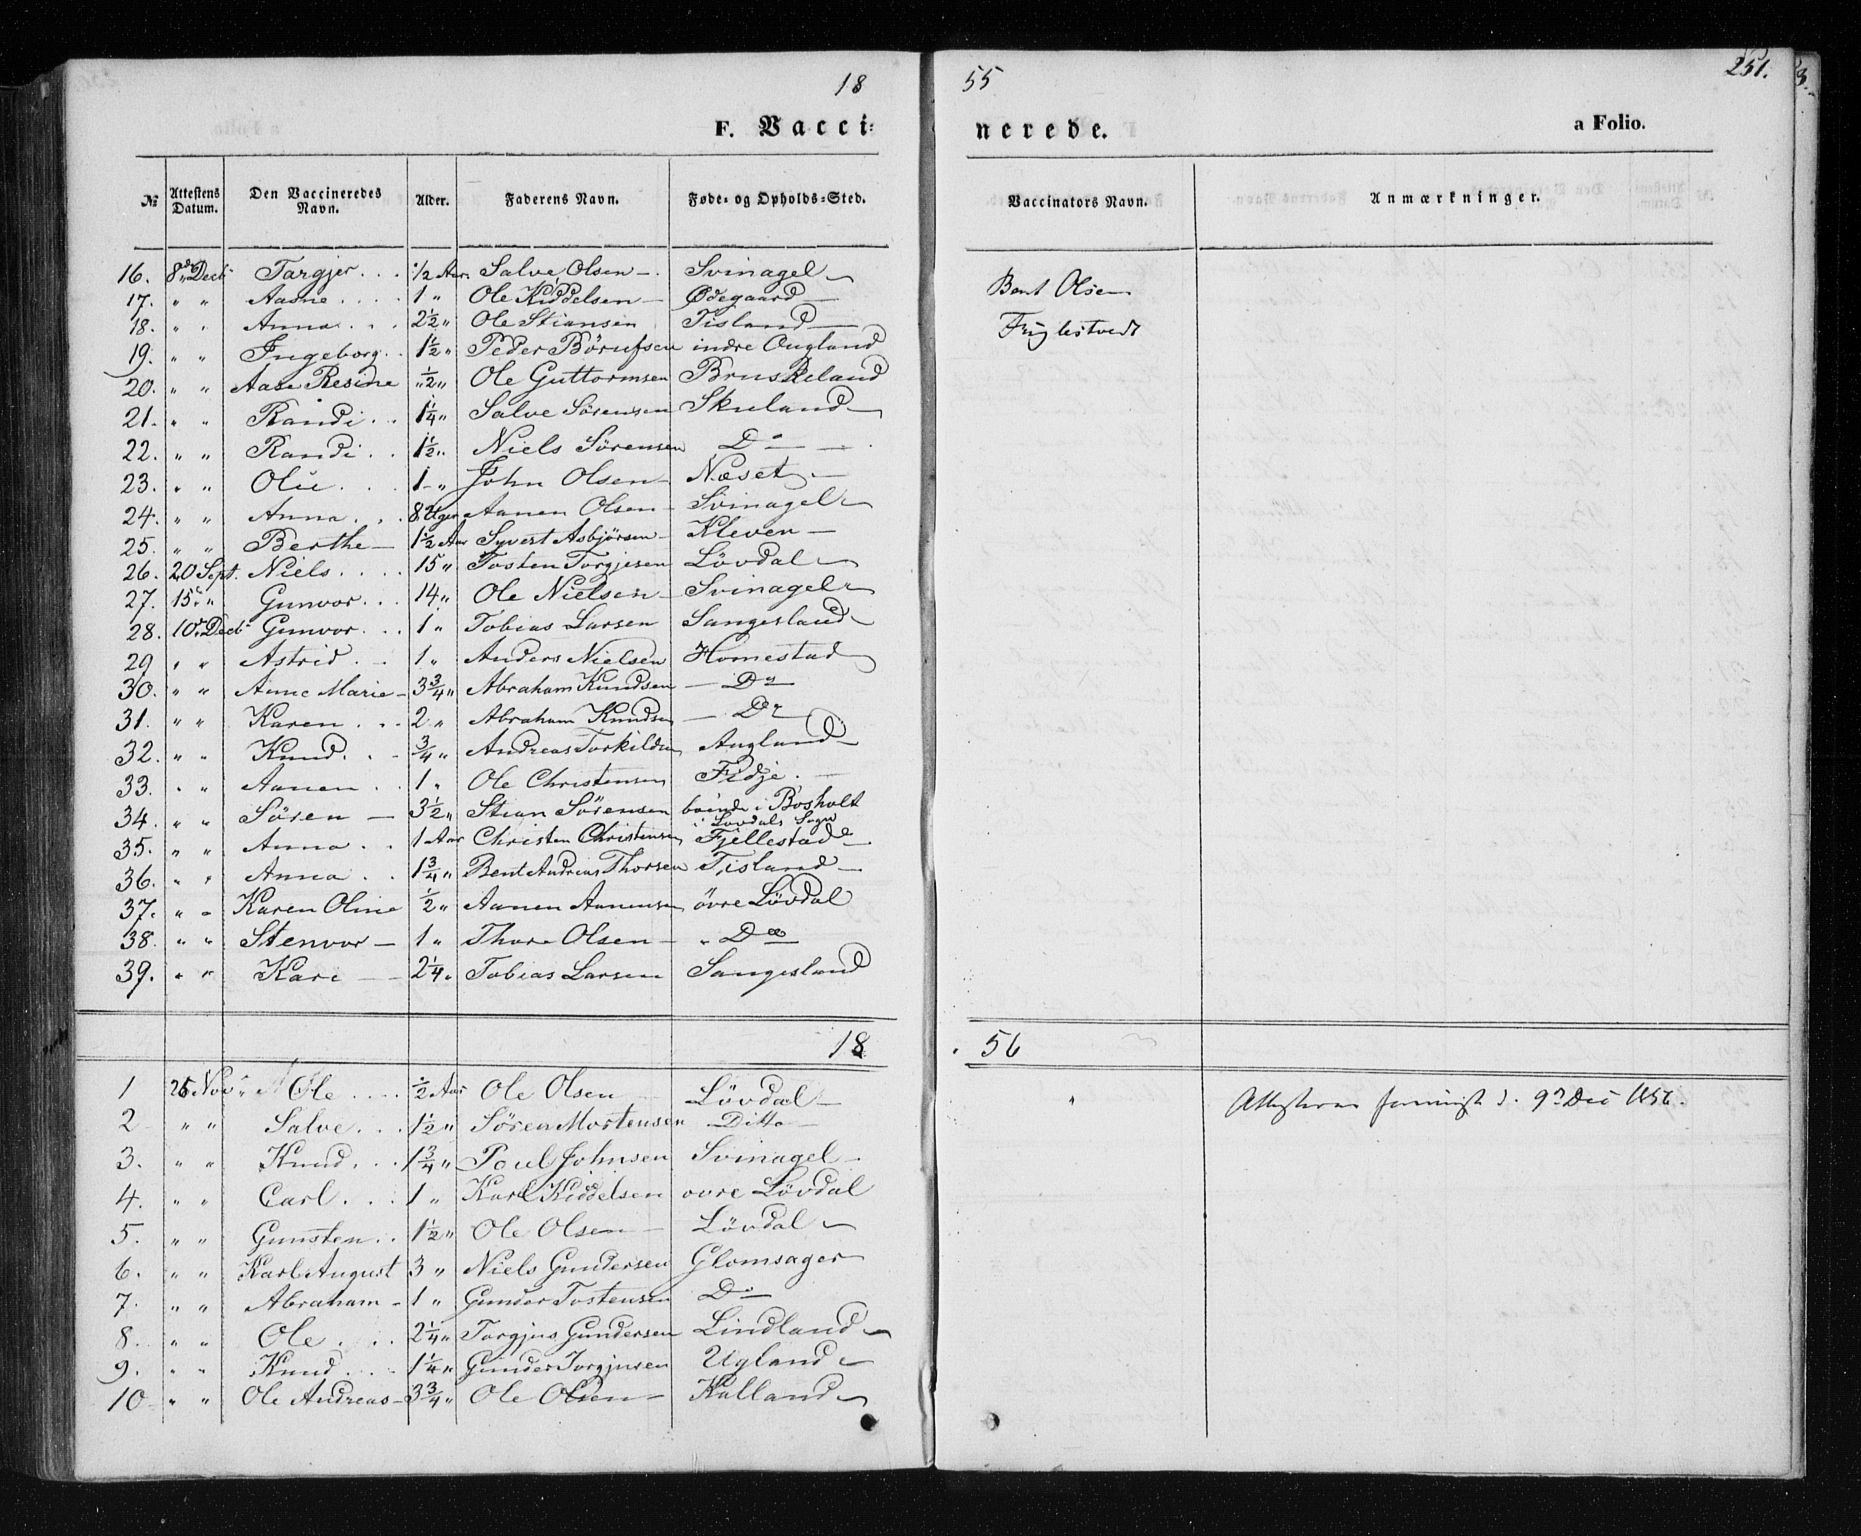 18 55 251.
F. Vacci: nerede. a Folio.
№ Attestens Datum. Den Vaccineredes Navn. Alder. Faderens Navn. Føde- og Opholds-Sted. Vaccinators Navn. Anmærkninger.
16. 8de Decb Targjer. 1/2 Aar. Salve Olsen Svinagel Bent Olsen
17. " " Aasne 1 " Ole Kiddelsen Ødegaard
18. " " Anna 2 1/2 " Ole Stiansen Tisland Fuglestvedt
19. " " Ingeborg 1 1/2 " Peder Börufsen indre Ougland
20. " " Aase Resine 1/2 " Ole Guttormsen Bruskeland
21. " " Randi 1 1/4 " Salve Sörensen Skuland
22. " " Randi 1 1/2 " Niels Sörensen Do
23. " " Olie 1 " John Olsen Næset
24. " " Anna 8 Uger Aanen Olsen Svinagel
25. " " Berthe 1 1/2 Aar Syvert Asbjörsen Kleven
26. 20 Sept. Niels 15 " Tosten Torgjesen Lövdal
27. 15 " " Gunvor 14 " Ole Nielsen Svinagel
28. 10 Decb Gunvor 1 " Tobias Larsen Sangesland
29 " " Astrid 1 " Anders Nielsen Homestad
30. " " Anne Marie 3 3/4 " Abraham Knudsen Do
31. " " Karen 2 " Abraham Knudsen Do
32. " " Knud 3/4 " Andreas Torkildsen Augland
33. " " Aanen 1 " Ole Christensen Fidje
34. " " Sören 3 1/2 " Stian Sörensen boende i Bosholt
i Lovdals Sogn
35. " " Anna 1 Aar Christen Christensen Fjellestad
36. " " Anna 1 3/4 " Bent Andreas Thorsen Tisland
37. " " Karen Oline 1/2 " Aanen Aanensen övre Lövdal
38. " " Stenvor 1 " Thore Olsen " Do
39. " " Kari 2 1/4 " Tobias Larsen Sangesland
18 56
1 26 Nov Ole 1/2 Aar Ole Olsen Lövdal " 9 Dec 1856.
2 " " Salve 1 1/2 " Sören Mortensen Ditto
3. " " Knud 1 3/4 " Poul Johnsen Svinagel
4. " " Carl 1 " Karl Kiddelsen ovre Lövdal
5. " " Gunsten 1 1/2 " Ole Olsen Lövdal
6. " " Karl August 3 " Niels Gundersen Glomsager
7. " " Abraham 1 " Gunder Tostensen Do
8. " " Ole 2 1/4 " Torgjus Gundersen Lindland
9. " " Knud 1 1/4 " Gunder Torgjusen Ugland
10 " " Ole Andreas 3 3/4 " Ole Olsen Kalland